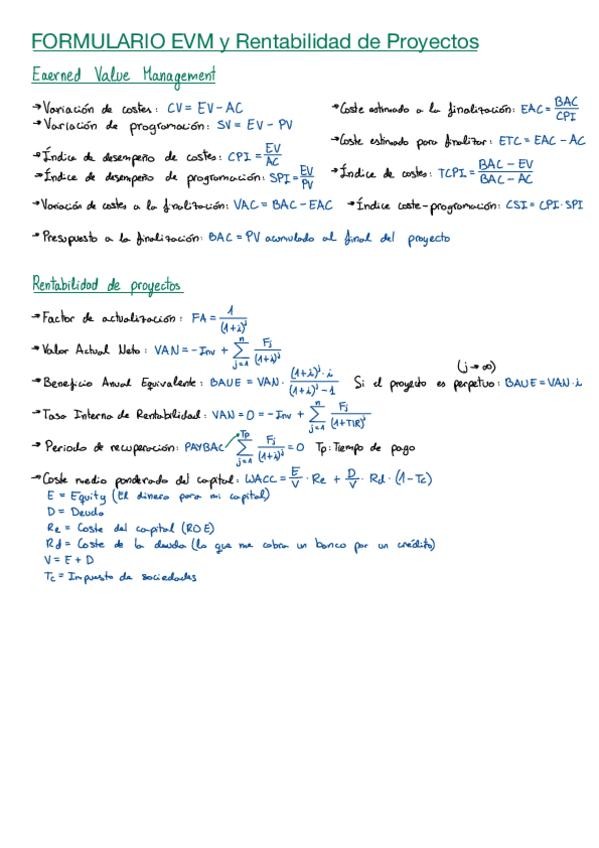 FORMULARIO EVM y Rentabilidad de Proyectos
Eaerned Value Management
→ Variación de costes: CV = EV - AC
→ Variación de programación: SV = EV - PV
→ Índice de desempeño de costes: CPI = EV/AC
→ Índice de desempeño de programación: SPI = EV/PV
→ Variación de costes a la finalización: VAC = BAC - EAC
→ Coste estimado a la finalización: EAC = BAC/CPI
→ Coste estimado para finalizar: ETC = EAC - AC
→ Índice de costes: TCPI = (BAC - EV)/(BAC - AC)
→ Índice coste-programación: CSI = CPI · SPI
→ Presupuesto a la finalización: BAC = PV acumulado al final del proyecto
Rentabilidad de proyectos
→ Factor de actualización: FA = 1/(1+i)^j
→ Valor Actual Neto: VAN = - Inv + Σ_{j=1}^{n} Fj/(1+i)^j
→ Beneficio Anual Equivalente: BAUE = VAN · ((1+i)^j · i)/((1+i)^j - 1) Si el proyecto es perpetuo: (j→∞) BAUE = VAN · i
→ Tasa Interna de Rentabilidad: VAN = 0 = - Inv + Σ_{j=1}^{n} Fj/(1+TIR)^j
→ Periodo de recuperación: PAYBAC Σ_{j=1}^{Tp} Fj/(1+i)^j = 0 Tp: Tiempo de pago
→ Coste medio ponderado del capital: WACC = E/V · Re + D/V · Rd · (1 - Tc)
E = Equity (El dinero para mi capital)
D = Deuda
Re = Coste del capital (ROE)
Rd = Coste de la deuda (lo que me cobra un banco por un crédito)
V = E + D
Tc = Impuesto de sociedades